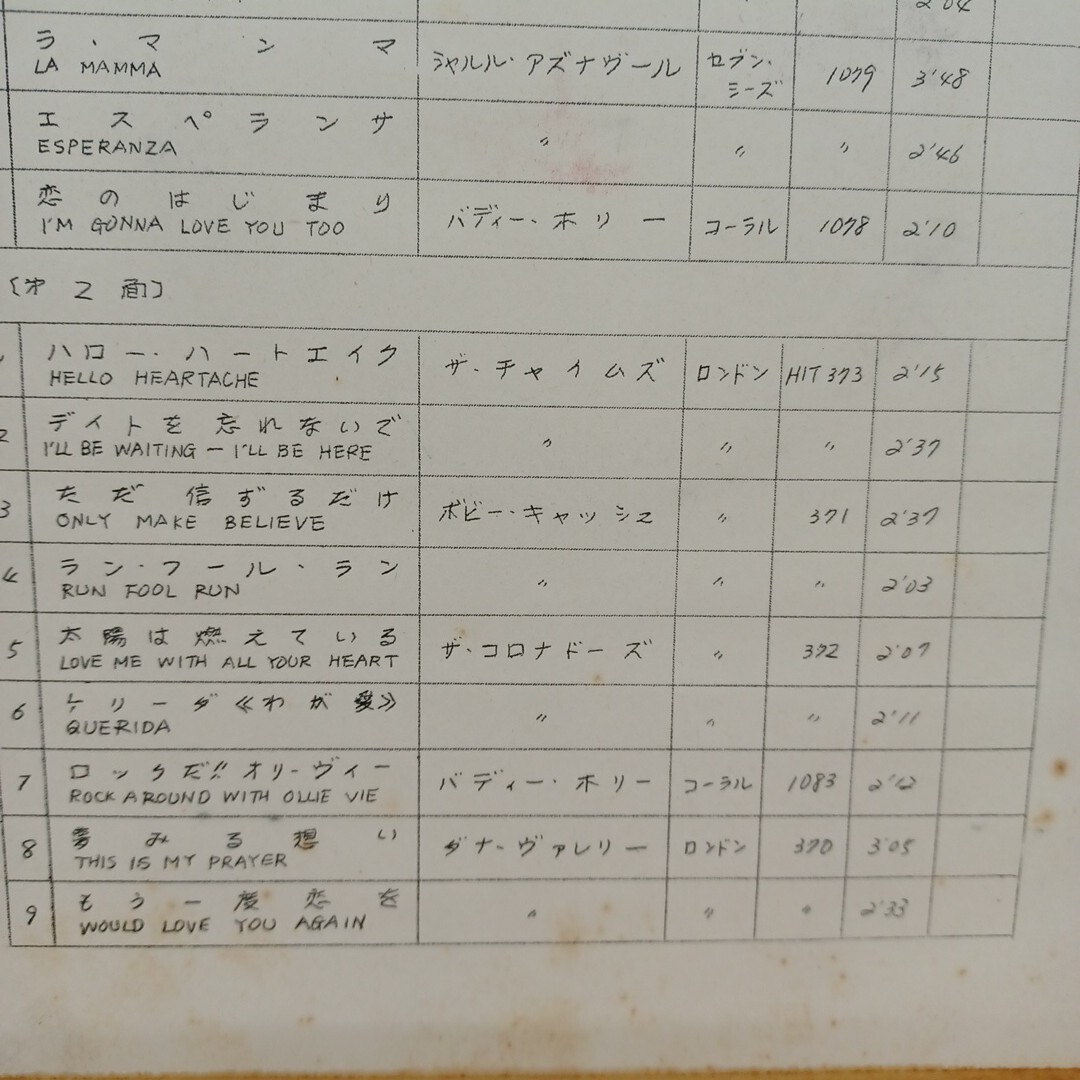 2'04
ラ・マンマ
LA MAMMA
シャルル・アズナヴール
セブン・シーズ
1079
3'48
エスペランサ
ESPERANZA
〃
〃
〃
2'46
恋のはじまり
I'M GONNA LOVE YOU TOO
バディー・ホリー
コーラル
1078
2'10
〔第2面〕
ハロー・ハートエイク
HELLO HEARTACHE
ザ・チャイムズ
ロンドン
HIT 373
2'15
2
デイトを忘れないで
I'LL BE WAITING – I'LL BE HERE
〃
〃
〃
2'37
3
ただ信ずるだけ
ONLY MAKE BELIEVE
ボビー・キャッシュ
〃
371
2'37
4
ラン・フール・ラン
RUN FOOL RUN
〃
〃
〃
2'03
5
太陽は燃えている
LOVE ME WITH ALL YOUR HEART
ザ・コロナドーズ
〃
372
2'07
6
ケリーダ《わが愛》
QUERIDA
〃
〃
〃
2'11
7
ロックだ!!オリーヴィー
ROCK AROUND WITH OLLIE VIE
バディー・ホリー
コーラル
1083
2'12
8
夢みる想い
THIS IS MY PRAYER
ダナ・ヴァレリー
ロンドン
370
3'05
9
もう一度恋を
WOULD LOVE YOU AGAIN
〃
〃
〃
2'33